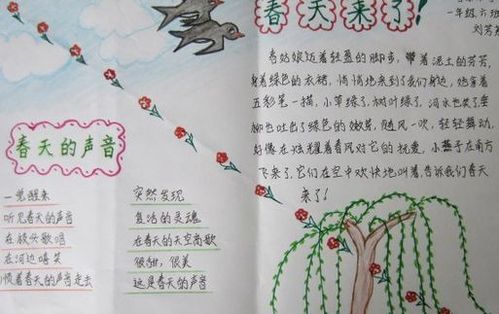 春天来了!
一年级.六班
刘芳
春姑娘迈着轻盈的脚步,带着泥土的芳芳,
身着绿色的衣裙,悄悄地来到了我们身边,她拿着
五彩笔一描,小草绿了,树叶绿了,河水也笑了,垂
柳也吐出了绿色的嫩芽,随风一吹,轻轻舞动,
好像在炫耀着春风对它的抚爱,小燕子在南方
飞来了,它们在空中欢快地叫着,告诉我们春天
来了!
春天的声音
一觉醒来
听见春天的声音
在枝头歌唱
在河边嘻笑
顺着春天的声音走去
突然发现
复活的灵魂
在春天的天空高歌
很甜,很美
这是春天的声音